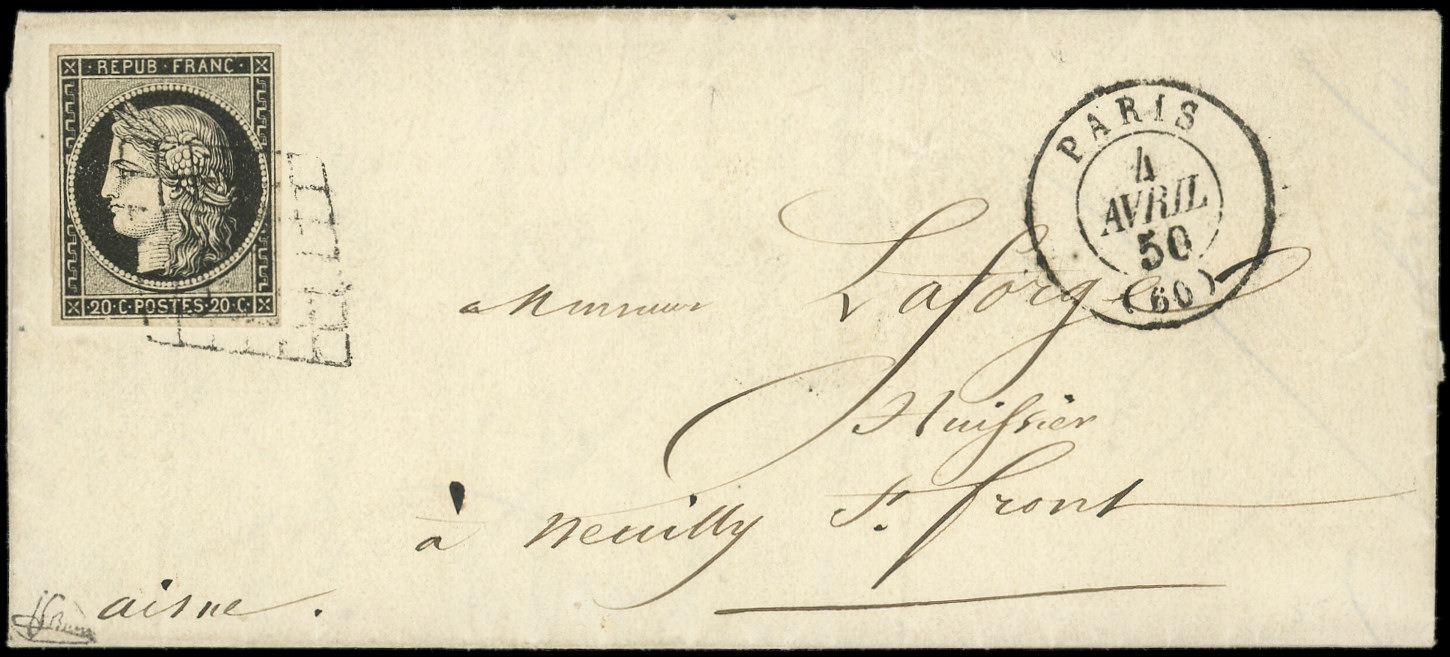 REPUB FRANC
20·C·POSTES·20·C·
PARIS
4
AVRIL
50
(60)
a Monsieur Laforge
Huissier
à Neuilly St. front
aisne.